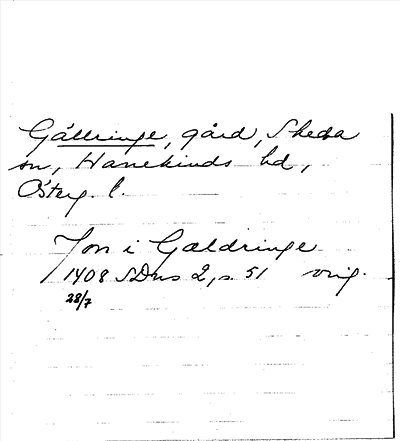 Gällringe, gård, Skeda
sn, Hanekinds hd,
Österg. l.
Jon i Gældringe
1408 SDns 2, s. 51 orig.
28/7